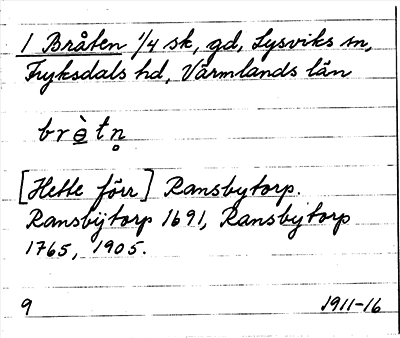 1 Bråten 1/4 sk, gd, Lysviks sn,
Fryksdals hd, Värmlands län
brə̀tn̥
[Hette förr] Ransbytorp.
Ransbÿtorp 1691, Ransbytorp
1765, 1905.
9 1911-16